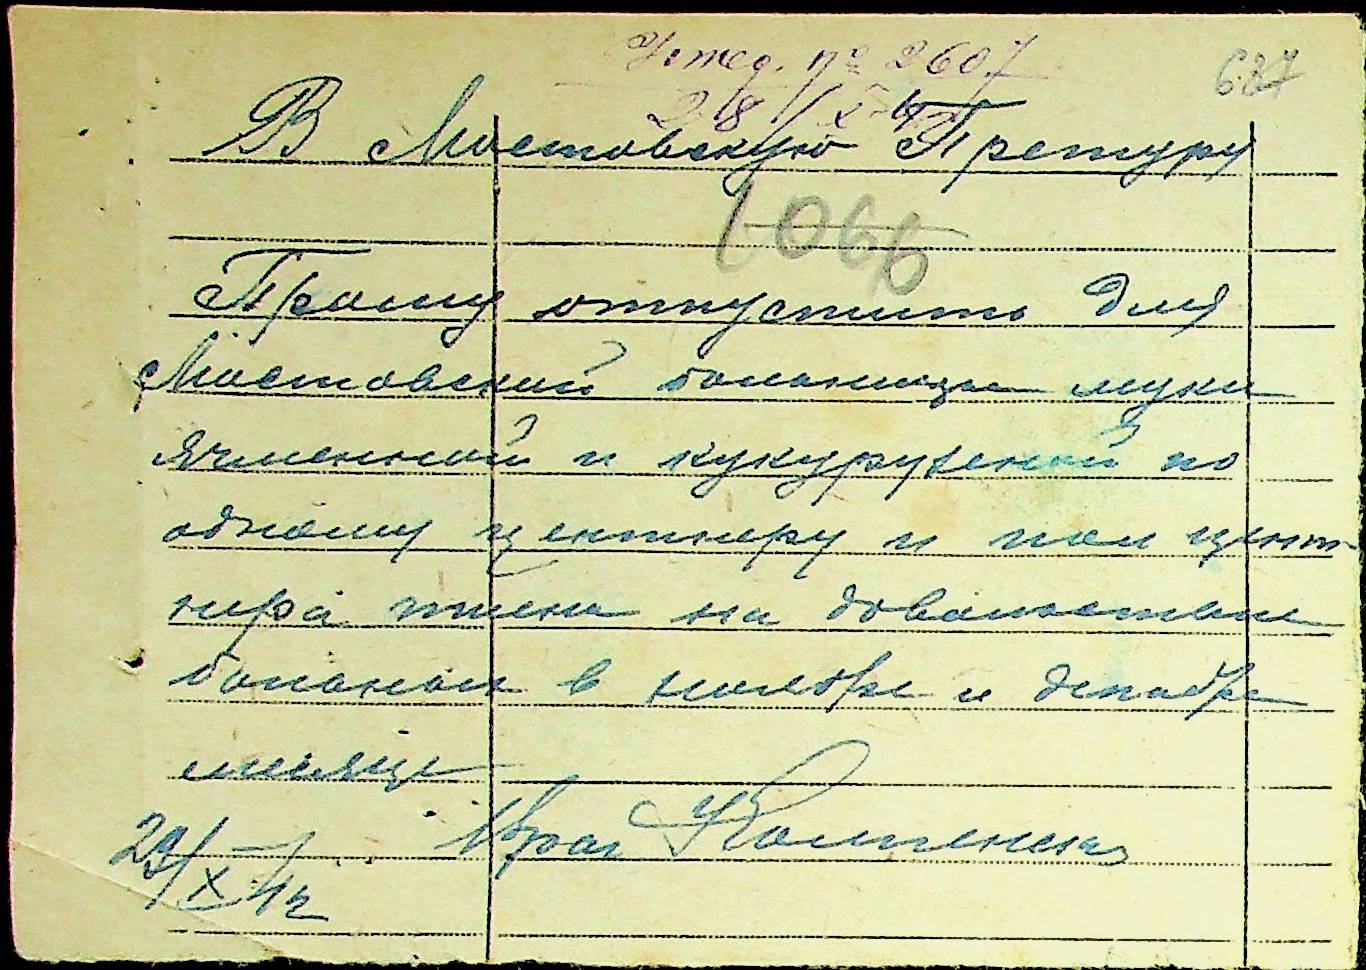 № 2607
637
28/X-42
В Мостовскую Претуру
1066
Прошу отпустить для
Мостовской больницы муки
ячменной и кукурузной по
одному центнеру и пол цент-
нера пшена на довольствие
больных в ноябре и декабре
месяце
Врач
29/X-42